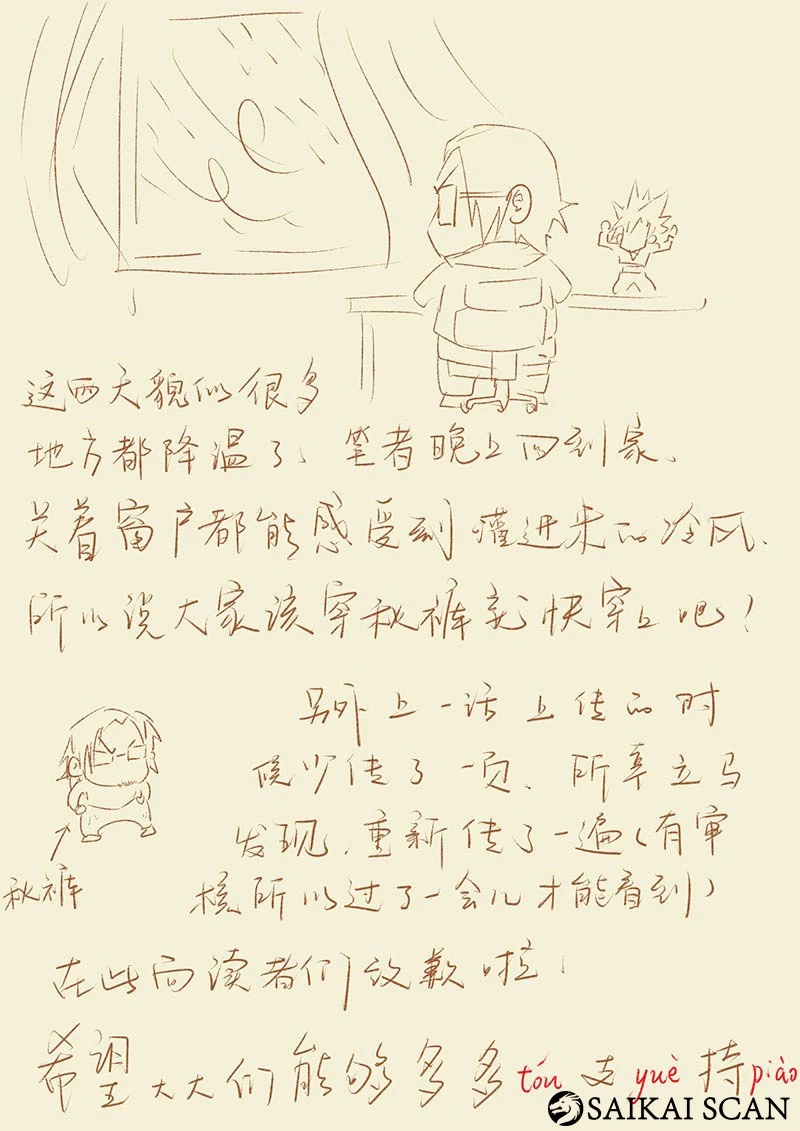 这两天貌似很多
地方都降温了、笔者晚上回到家、
关着窗户都能感受到灌进来的冷风、
所以说大家该穿秋裤就快穿上吧!
另外上一话上传的时
候少传了一页、所幸立马
发现、重新传了一遍(有审
核所以过了一会儿才能看到)
秋裤
在此向读者们致歉啦!
希望大大们能够多多tóu支yuè持piào
SAIKAI SCAN